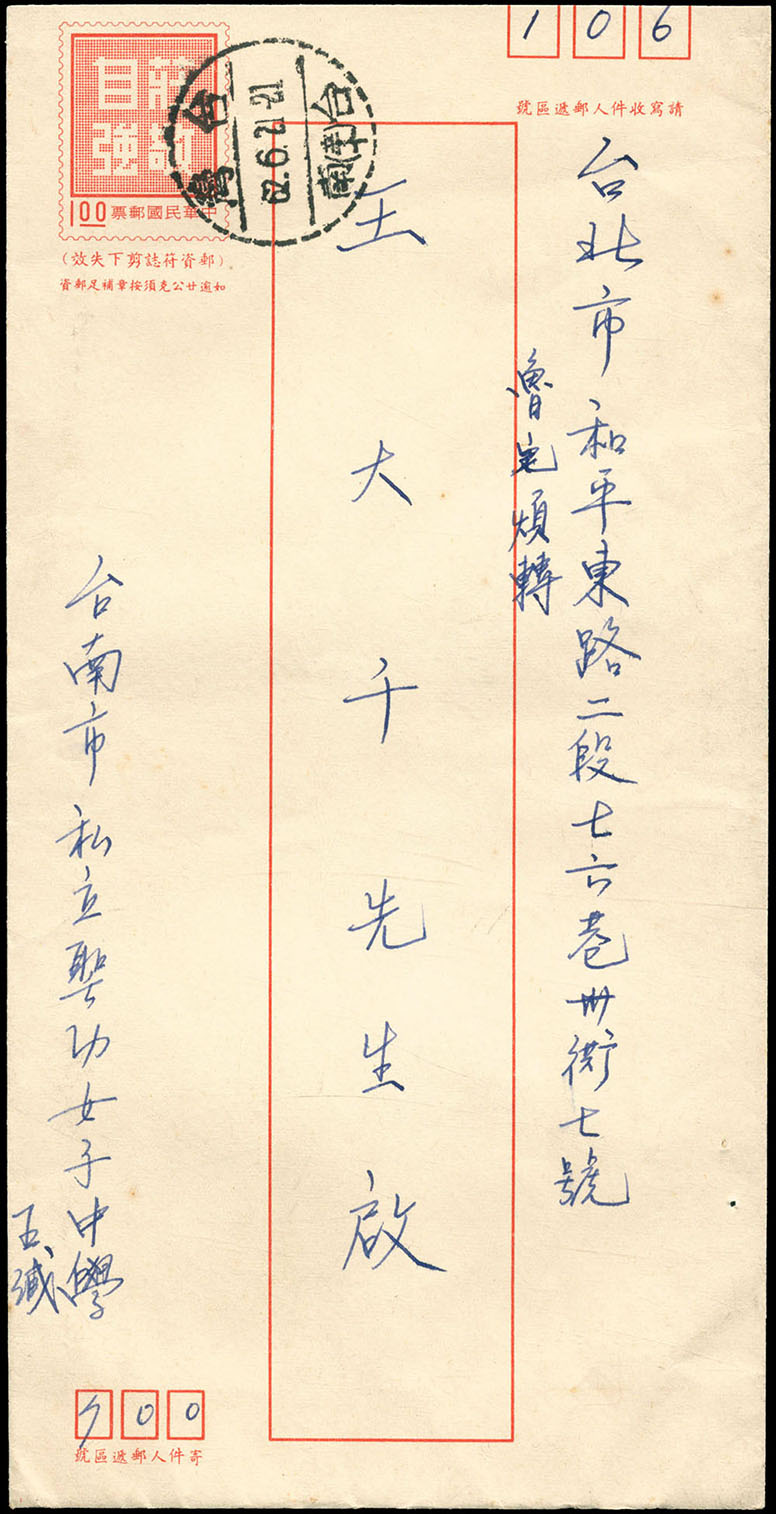 106
請寫收件人郵遞區號
台北市和平東路二段七六巷卅衖七號
魯宅煩轉
王大千先生啟
莊敬
自強
中華民國郵票 1.00
(郵資符誌剪下失效)
如逾廿公克須按章補足郵資
台灣
62.6.21-21
台南
台南市私立聖功女子中學
王緘
700
寄件人郵遞區號